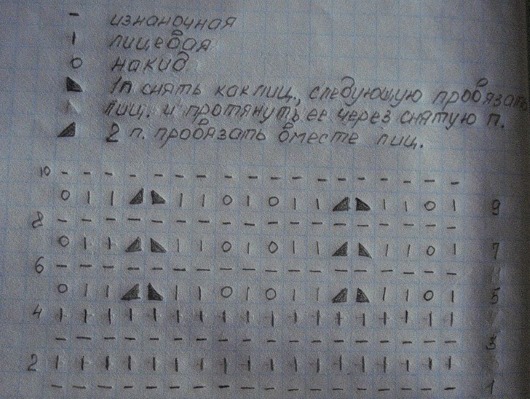 – изнаночная
| лицевая
o накид
◣ 1п снять как лиц., следующую провязат
лиц. и протянуть ее через снятую п.
◢ 2 п. провязать вместе лиц.
10 – – – – – – – – – – – – – – – – – –
o | | ◢ ◣ | | o | o | | ◢ ◣ | | o | 9
8 – – – – – – – – – – – – – – – – – –
o | | ◢ ◣ | | o | o | | ◢ ◣ | | o | 7
6 – – – – – – – – – – – – – – – – – –
o | | ◢ ◣ | | o | o | | ◢ ◣ | | o | 5
4 | | | | | | | | | | | | | | | | | |
– – – – – – – – – – – – – – – – – – 3
2 | | | | | | | | | | | | | | | | | |
– – – – – – – – – – – – – – – – – – 1